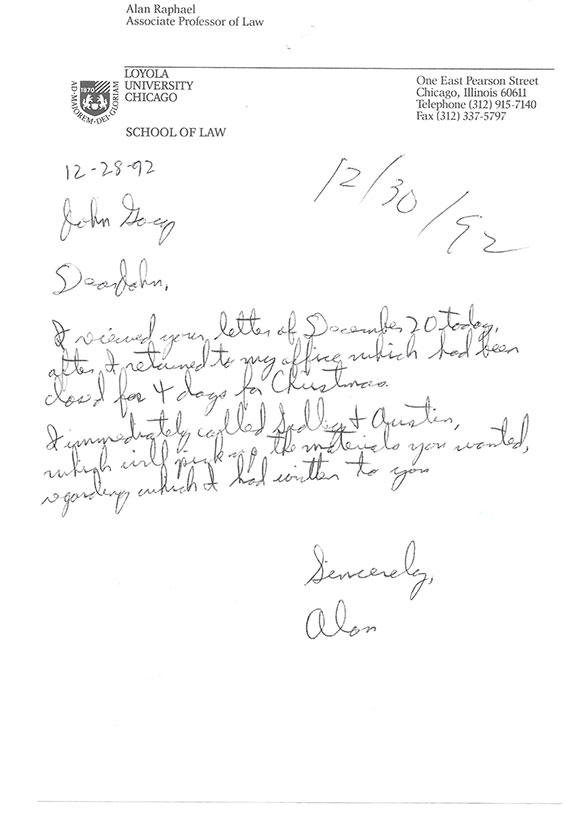 Alan Raphael
Associate Professor of Law
1870
AD·MAIOREM·DEI·GLORIAM
LOYOLA
UNIVERSITY
CHICAGO
SCHOOL OF LAW
One East Pearson Street
Chicago, Illinois 60611
Telephone (312) 915-7140
Fax (312) 337-5797
12-28-92
12/30/92
John Gacy
Dear John,
I viewed your letter of December 20 today,
after I returned to my office which had been
closed for 4 days for Christmas.
I immediately called Sidley & Austin,
which will pick up the materials you wanted,
regarding which I had written to you
Sincerely,
Alan